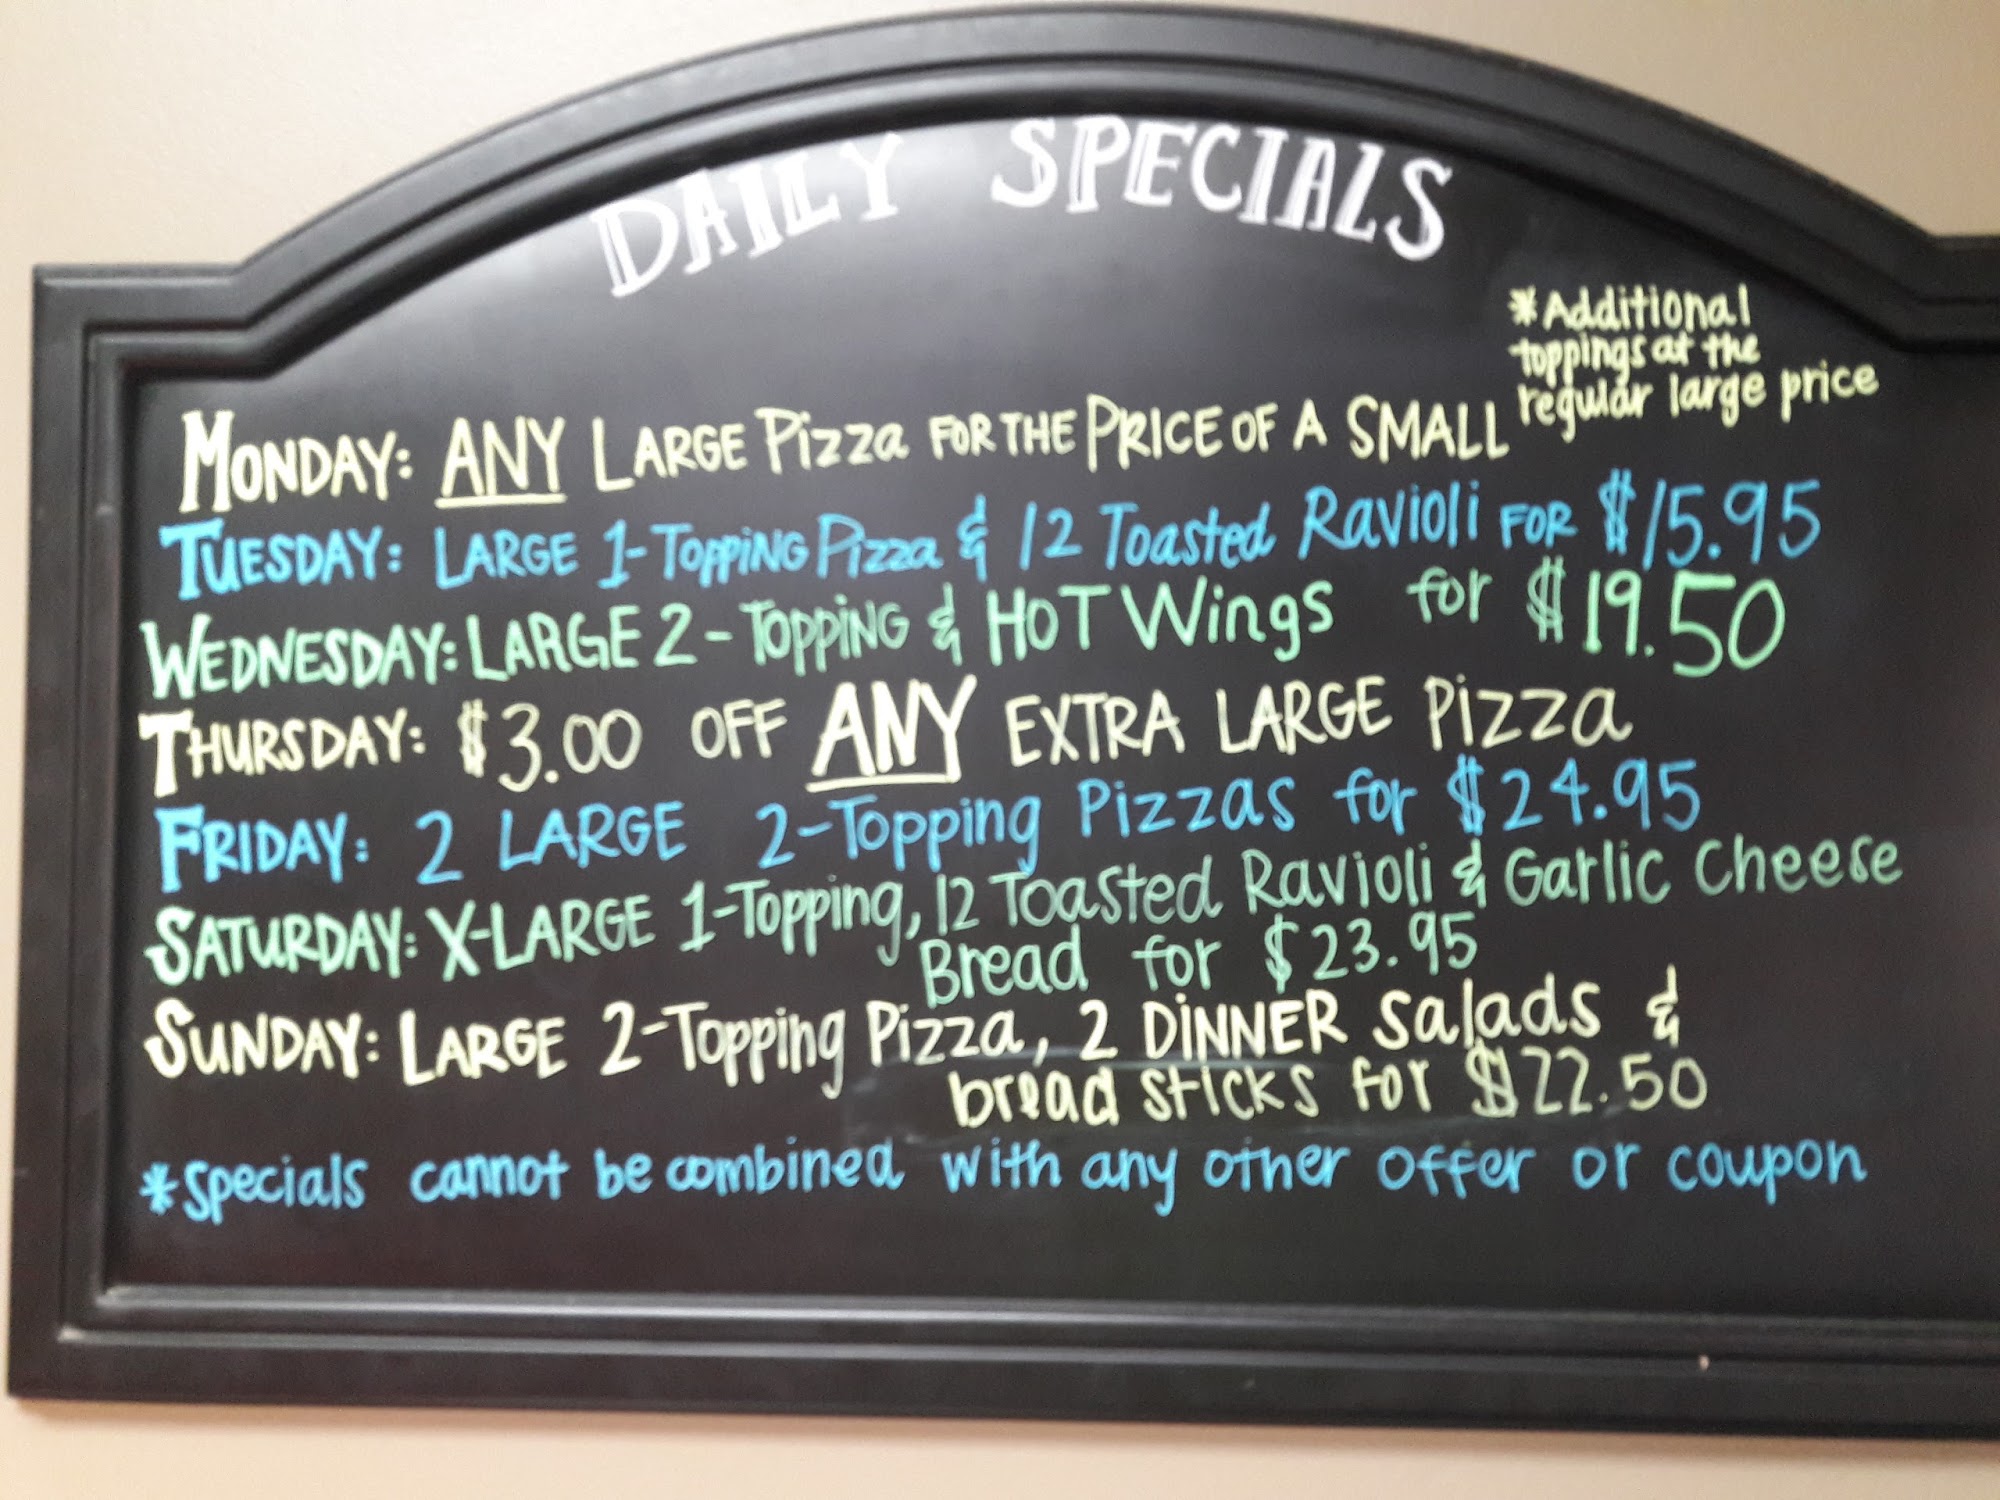 DAILY SPECIALS
*Additional
toppings at the
regular large price
MONDAY: ANY LARGE Pizza FOR THE PRICE OF A SMALL
TUESDAY: LARGE 1-TOPPING Pizza & 12 Toasted Ravioli FOR $15.95
WEDNESDAY: LARGE 2-TOPPING & HOT Wings for $19.50
THURSDAY: $3.00 OFF ANY EXTRA LARGE Pizza
FRIDAY: 2 LARGE 2-Topping Pizzas for $24.95
SATURDAY: X-LARGE 1-Topping, 12 Toasted Ravioli & Garlic Cheese
Bread for $23.95
SUNDAY: LARGE 2-Topping Pizza, 2 DINNER Salads &
bread sticks for $22.50
*Specials cannot be combined with any other offer or coupon